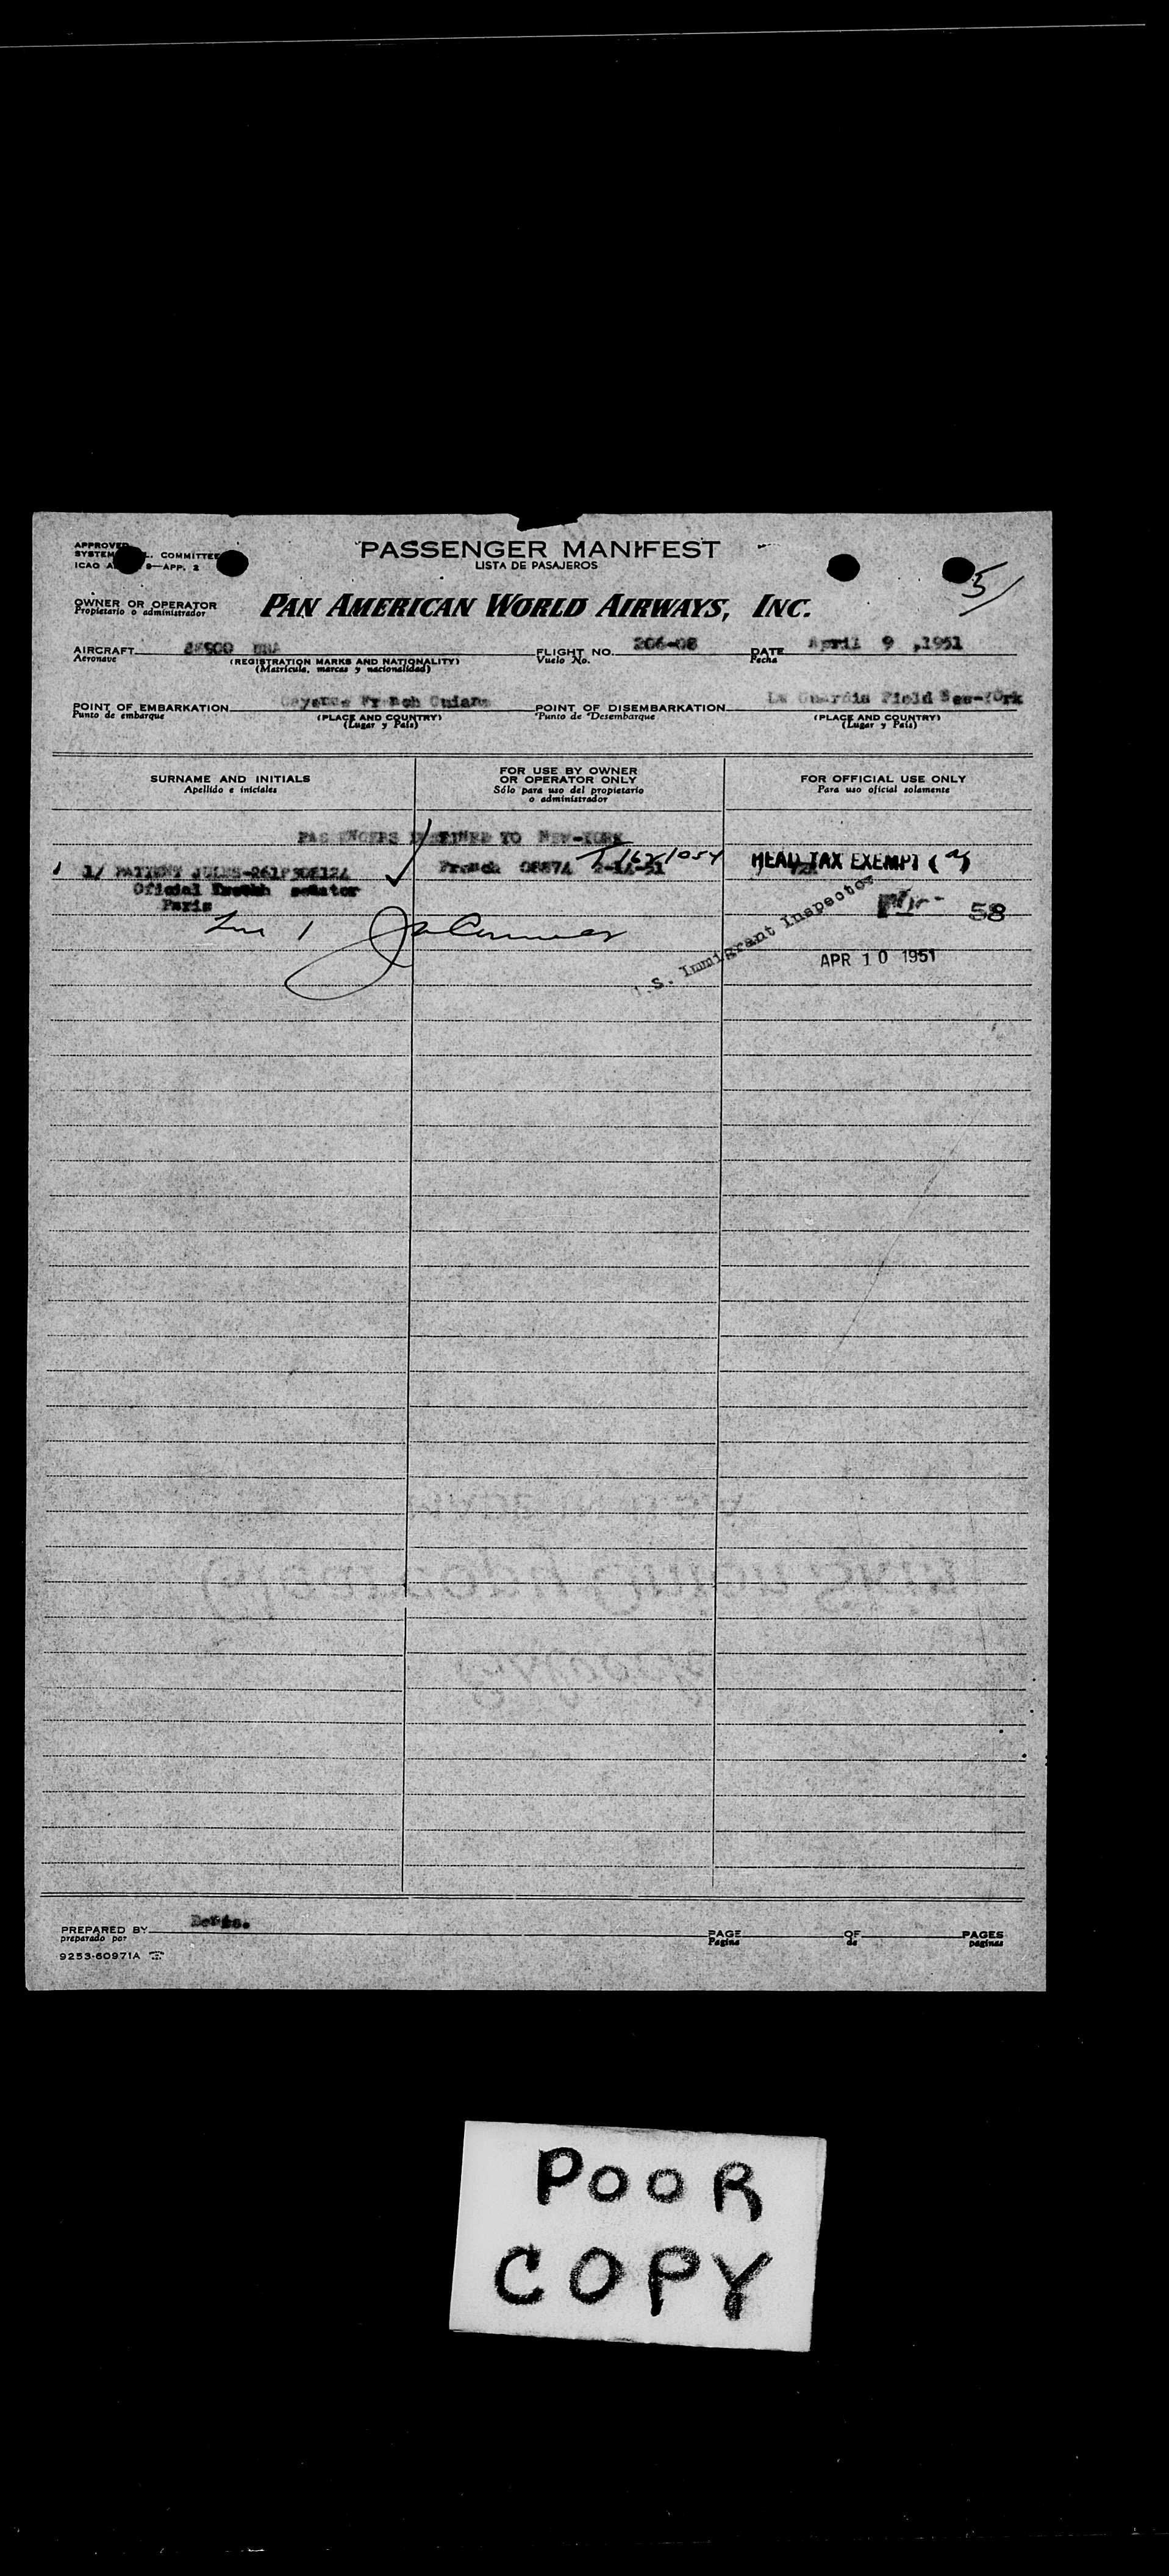 PASSENGER MANIFEST
LISTA DE PASAJEROS
APPROVED
SYSTEM L. COMMITTEE
ICAO A 9—APP. 2
5/
OWNER OR OPERATOR
Propietario o administrador
PAN AMERICAN WORLD AIRWAYS, INC.
AIRCRAFT FLIGHT NO. 206-08 DATE April 9 ,1951
Aeronave Vuelo No. Fecha
(REGISTRATION MARKS AND NATIONALITY)
(Matrícula, marcas y nacionalidad)
POINT OF EMBARKATION Cayenne French Guiana POINT OF DISEMBARKATION La Guardia Field New-York
Punto de embarque Punto de Desembarque
(PLACE AND COUNTRY) (PLACE AND COUNTRY)
(Lugar y País) (Lugar y País)
SURNAME AND INITIALS
Apellido e iniciales
FOR USE BY OWNER
OR OPERATOR ONLY
Sólo para uso del propietario
o administrador
FOR OFFICIAL USE ONLY
Para uso oficial solamente
PASSENGERS DESTINED TO NEW-YORK
1/ PATIENT JULES French T 1621054 HEAD TAX EXEMPT
Oficial French senator
Paris
58
U.S. Immigrant Inspector
APR 10 1951
PREPARED BY PAGE OF PAGES
preparado por Pagina de paginas
9253-60971A
POOR
COPY